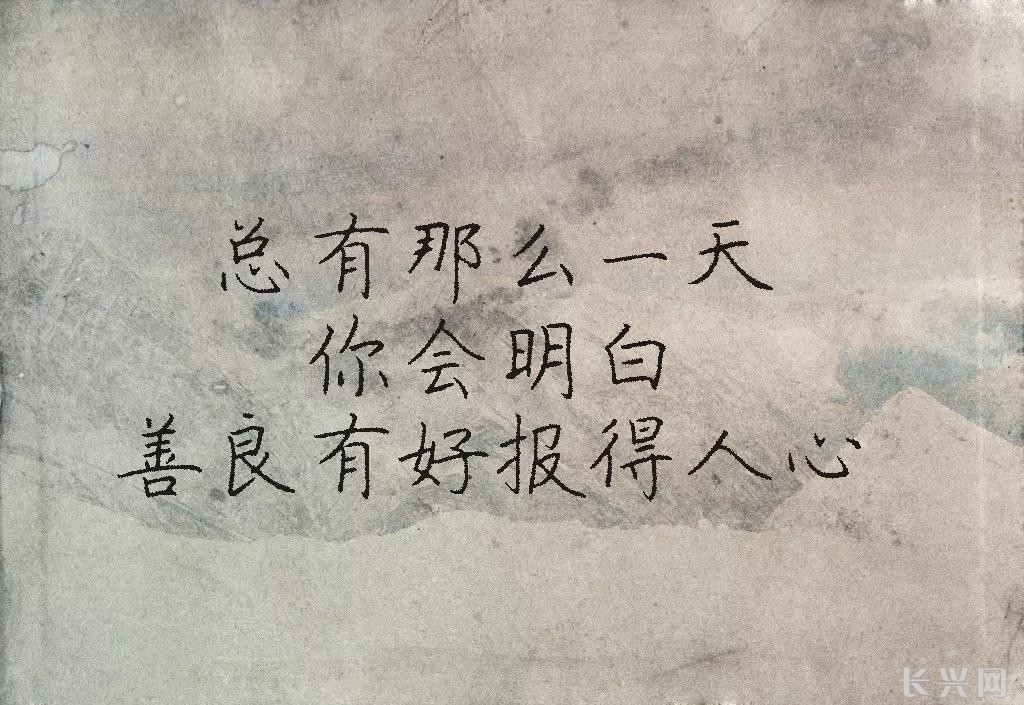 总有那么一天
你会明白
善良有好报得人心
长兴网